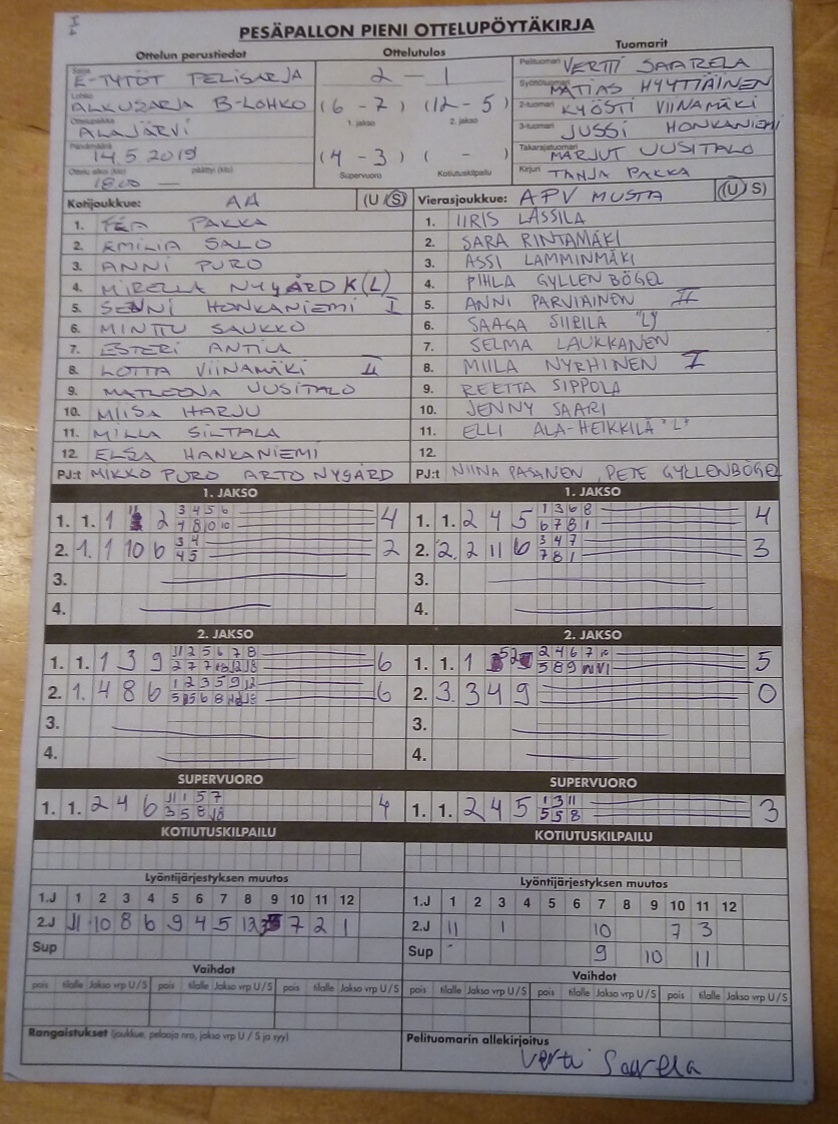 PESÄPALLON PIENI OTTELUPÖYTÄKIRJA
Ottelun perustiedot Ottelutulos Tuomarit
Sarja E-TYTÖT PELISARJA 2 - 1 Pelituomari VERTTI SAARELA
Lohko ALKUSARJA B-LOHKO (6 - 7) (12 - 5) Syöttötuomari MATIAS HYYTIÄINEN
1. jakso 2. jakso 2-tuomari KYÖSTI VIINAMÄKI
Ottelupaikka ALAJÄRVI 3-tuomari JUSSI HONKANIEMI
Päivämäärä 14.5 2019 (4 - 3) ( - ) Takarajatuomari MARJUT UUSITALO
Ottelu alkoi (klo) 18.00 päättyi (klo) — Supervuoro Kotiutuskilpailu Kirjuri TANJA PAKKA
Kotijoukkue: AA (U S) Vierasjoukkue: APV MUSTA (U S)
1. TEA PAKKA 1. IIRIS LASSILA
2. EMILIA SALO 2. SARA RINTAMÄKI
3. ANNI PURO 3. ASSI LAMMINMÄKI
4. MIRELLA NYGÅRD K(L) 4. PIHLA GYLLENBÖGEL
5. SENNI HONKANIEMI I 5. ANNI PARVIAINEN II
6. MINTTU SAUKKO 6. SAAGA SIIPILA "L"
7. ESTERI ANTILA 7. SELMA LAUKKANEN
8. LOTTA VIINAMÄKI II 8. MIILA NYRHINEN I
9. MATLEENA UUSITALO 9. REETTA SIPPOLA
10. MIISA HARJU 10. JENNY SAARI
11. MILLA SILTALA 11. ELLI ALA-HEIKKILÄ "L"
12. ELSA HANKANIEMI 12.
PJ:t MIKKO PURO ARTO NYGÅRD PJ:t NIINA PASANEN, PETE GYLLENBÖGEL
1. JAKSO 1. JAKSO
1. 1. 1 11 2 3 4 5 6 4 1. 1. 2 4 5 1 3 6 8 4
4 8 10 10 6 7 8 1
2. 1. 1 10 6 3 4 2 2. 2. 2 11 6 3 4 7 3
4 5 7 8 1
3. 3.
4. 4.
2. JAKSO 2. JAKSO
1. 1. 1 3 9 11 2 5 6 7 8 6 1. 1. 1 52 2 4 6 7 10 5
2 7 7 5 8 9
2. 1. 4 8 6 1 2 3 5 9 12 6 2. 3. 3 4 9 0
3. 3.
4. 4.
SUPERVUORO SUPERVUORO
1. 1. 2 4 6 11 1 5 7 4 1. 1. 2 4 5 1 3 11 3
3 5 8 5 5 8
KOTIUTUSKILPAILU KOTIUTUSKILPAILU
Lyöntijärjestyksen muutos Lyöntijärjestyksen muutos
1.J 1 2 3 4 5 6 7 8 9 10 11 12 1.J 1 2 3 4 5 6 7 8 9 10 11 12
2.J 11 10 8 6 9 4 5 12 3 7 2 1 2.J 11 1 10 7 3
Sup Sup 9 10 11
Vaihdot Vaihdot
pois tilalle Jakso vrp U / S pois tilalle Jakso vrp U / S pois tilalle Jakso vrp U / S pois tilalle Jakso vrp U / S pois tilalle Jakso vrp U / S pois tilalle Jakso vrp U / S
Rangaistukset (joukkue, pelaaja nro, jakso vrp U / S ja syy) Pelituomarin allekirjoitus
Vertti Saarela